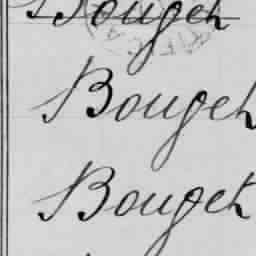 Bougeh
Bougeh
Bouget